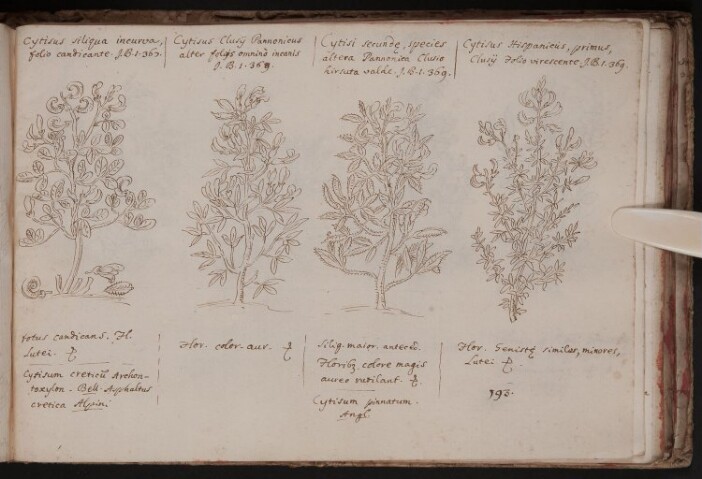 Cytisus siliqua incurva,
folio candicante. J.B.1.363.
Cytisus Clusij Pannonicus
alter folijs omnino incanis
J.B.1.369.
Cytisi secundę, species
altera Pannonica Clusio
hirsuta valde. J.B.1.369.
Cytisus Hispanicus, primus,
Clusij Folio virescente. J.B.1.369.
totus candicans. Fl.
lutei.
Cytisum creticũ
cretica Alpini
Flor. color. aur.
Siliq. maior. anteced.
Floribꝫ colore magis
aureo rutilant.
Cytisum pinnatum.
Angl.
Flor. Genistę similes, minores,
Lutei
193.